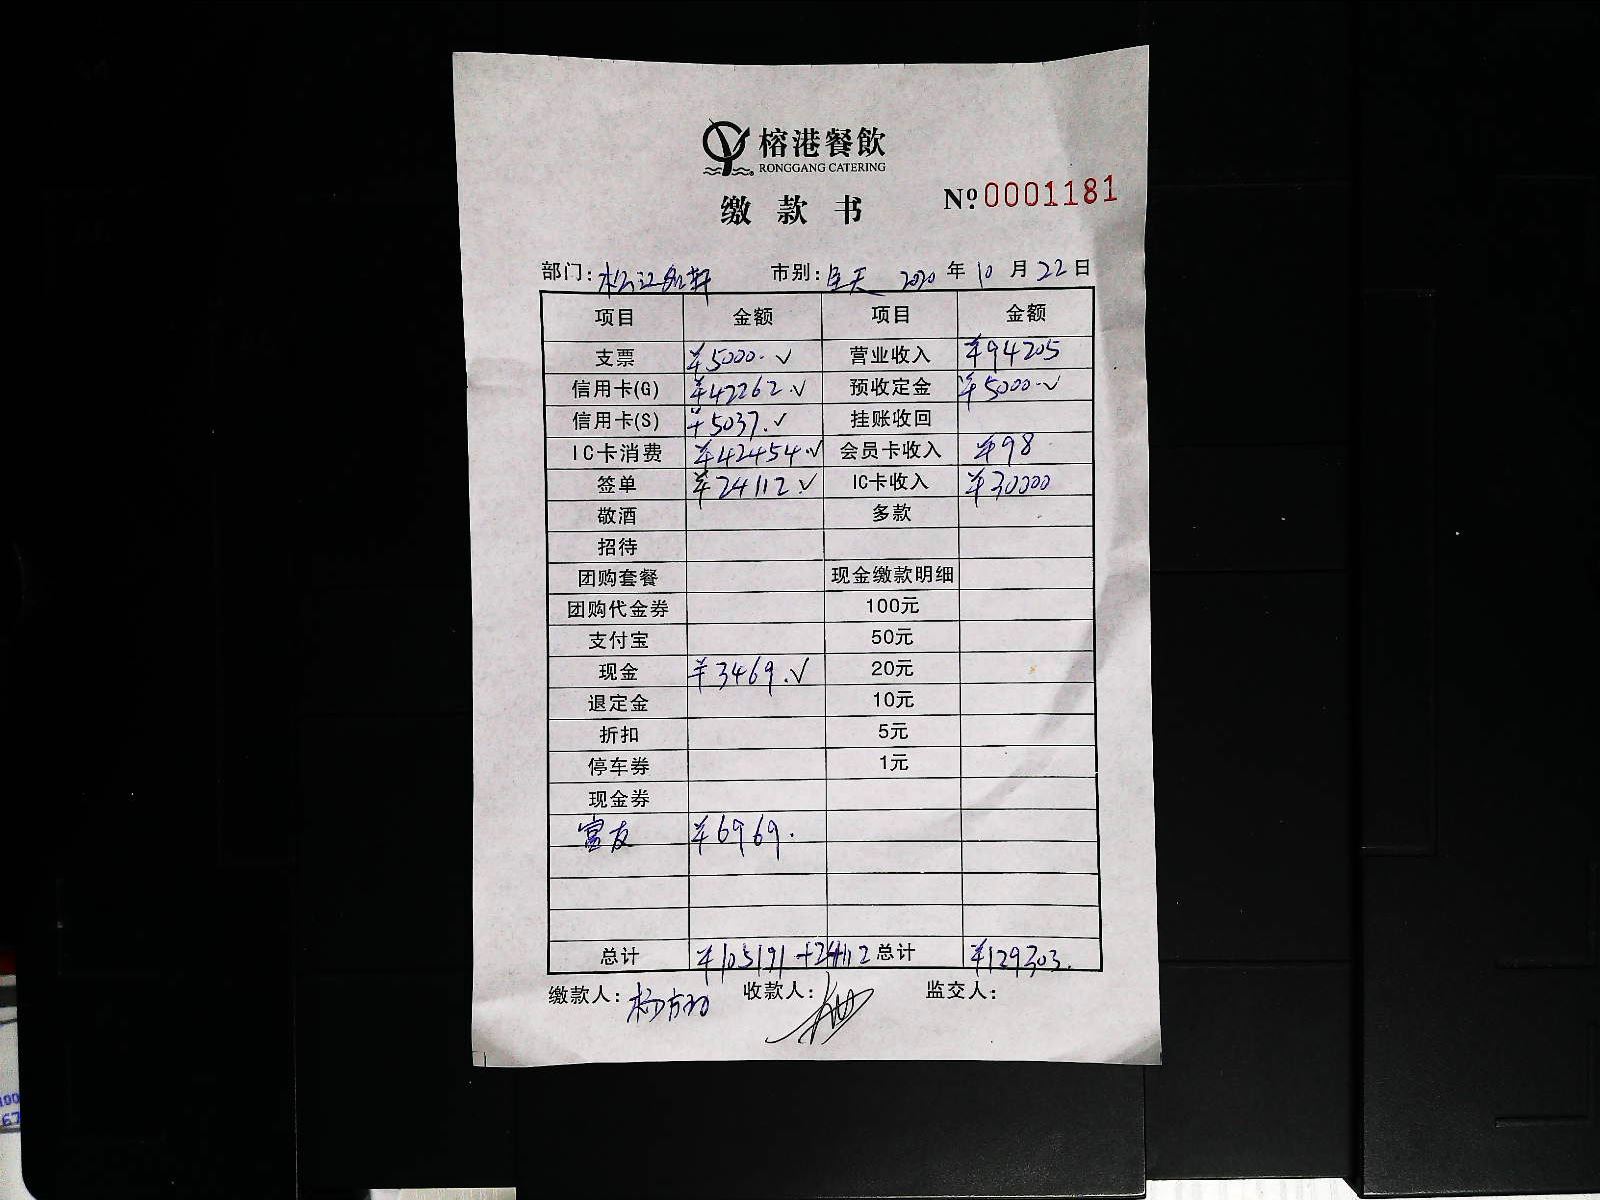 榕港餐飲
RONGGANG CATERING
缴款书
№0001181
部门: 松江 轩 市别: 全天 2020年10月22日
项目 金额 项目 金额
支票 ¥5000.✓ 营业收入 ¥94205
信用卡(G) ¥42262.✓ 预收定金 ¥5000.✓
信用卡(S) ¥5037.✓ 挂账收回
IC卡消费 ¥42454.✓ 会员卡收入 ¥98
签单 ¥24112.✓ IC卡收入 ¥30000
敬酒 多款
招待
团购套餐 现金缴款明细
团购代金券 100元
支付宝 50元
现金 ¥3469.✓ 20元
退定金 10元
折扣 5元
停车券 1元
现金券
富友 ¥6969.
总计 ¥105191+24112 总计 ¥129303.
缴款人: 杨 收款人: 监交人:
100
67